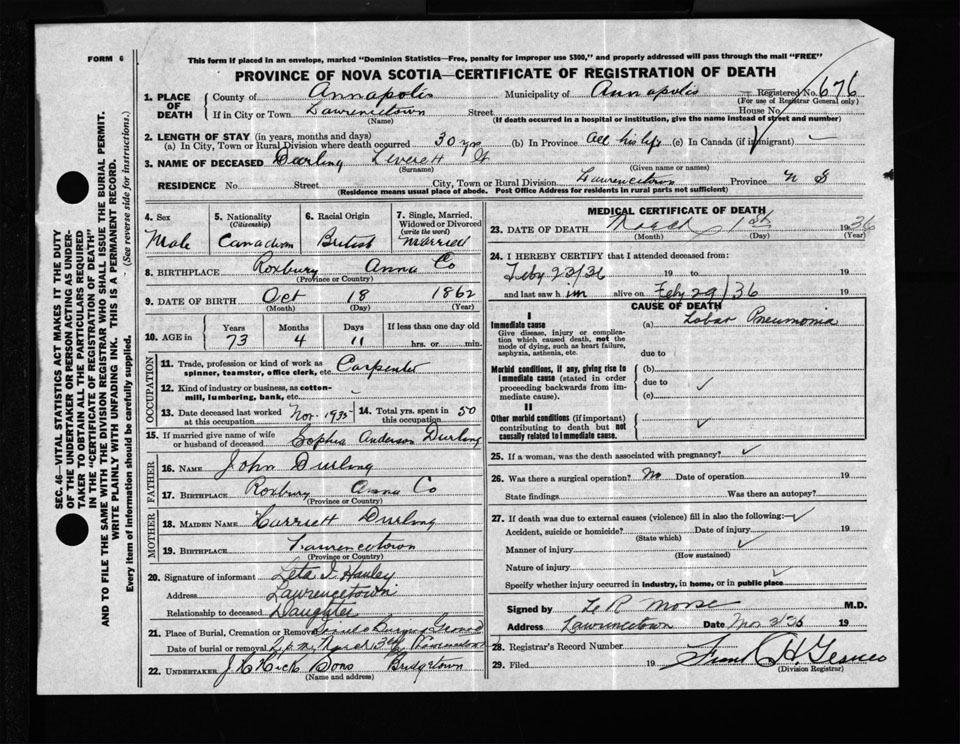 FORM 6
This form if placed in an envelope, marked "Dominion Statistics—Free, penalty for improper use $300," and properly addressed will pass through the mail "FREE"
PROVINCE OF NOVA SCOTIA—CERTIFICATE OF REGISTRATION OF DEATH
1. PLACE OF DEATH { County of Annapolis Municipality of Annapolis Registered No. 676
(For use of Registrar General only)
If in City or Town Lawrencetown Street House No
(Name) (If death occurred in a hospital or institution, give the name instead of street and number)
2. LENGTH OF STAY (in years, months and days)
(a) In City, Town or Rural Division where death occurred 30 yrs (b) In Province All his life (c) In Canada (if immigrant)
3. NAME OF DECEASED Durling Leverett
(Surname) (Given name or names)
RESIDENCE No Street City, Town or Rural Division Lawrencetown Province N S
(Residence means usual place of abode. Post Office Address for residents in rural parts not sufficient)
4. Sex Male
5. Nationality (Citizenship) Canadian
6. Racial Origin British
7. Single, Married, Widowed or Divorced (write the word) Married
8. BIRTHPLACE Roxbury Anna Co
(Province or Country)
9. DATE OF BIRTH Oct 18 1862
(Month) (Day) (Year)
10. AGE in Years 73 Months 4 Days 11 If less than one day old hrs. or min.
OCCUPATION
11. Trade, profession or kind of work as spinner, teamster, office clerk, etc. Carpenter
12. Kind of industry or business, as cotton-mill, lumbering, bank, etc.
13. Date deceased last worked at this occupation Nov. 1935 14. Total yrs. spent in this occupation 50
15. If married give name of wife or husband of deceased Sophia Anderson Durling
FATHER
16. NAME John Durling
17. BIRTHPLACE Roxbury Anna Co
(Province or Country)
MOTHER
18. MAIDEN NAME Harriett Durling
19. BIRTHPLACE Lawrencetown
(Province or Country)
20. Signature of informant Leta I. Hanley
Address Lawrencetown
Relationship to deceased Daughter
21. Place of Burial, Cremation or Removal Ground
Date of burial or removal
22. UNDERTAKER J H Hick Sons Bridgetown
(Name and address)
MEDICAL CERTIFICATE OF DEATH
23. DATE OF DEATH March 1st 1936
(Month) (Day) (Year)
24. I HEREBY CERTIFY that I attended deceased from:
Feby 23/36 19 to 19
and last saw him alive on Feby 29/36 19
CAUSE OF DEATH
I
Immediate cause
Give disease, injury or complication which caused death, not the mode of dying, such as heart failure, asphyxia, asthenia, etc.
(a) Lobar Pneumonia
due to
Morbid conditions, if any, giving rise to immediate cause (stated in order proceeding backwards from immediate cause).
(b)
due to
(c)
II
Other morbid conditions (if important) contributing to death but not causally related to immediate cause.
25. If a woman, was the death associated with pregnancy?
26. Was there a surgical operation? No Date of operation 19
State findings Was there an autopsy?
27. If death was due to external causes (violence) fill in also the following:
Accident, suicide or homicide? Date of injury 19
(State which)
Manner of injury
(How sustained)
Nature of injury
Specify whether injury occurred in industry, in home, or in public place
Signed by L R Morse M.D.
Address Lawrencetown Date 19
28. Registrar's Record Number
29. Filed 19 Frank H.
(Division Registrar)
SEC. 46—VITAL STATISTICS ACT MAKES IT THE DUTY
OF THE UNDERTAKER OR PERSON ACTING AS UNDER-
TAKER TO OBTAIN ALL THE PARTICULARS REQUIRED
IN THE "CERTIFICATE OF REGISTRATION OF DEATH"
AND TO FILE THE SAME WITH THE DIVISION REGISTRAR WHO SHALL ISSUE THE BURIAL PERMIT.
WRITE PLAINLY WITH UNFADING INK. THIS IS A PERMANENT RECORD.
Every item of Information should be carefully supplied. (See reverse side for instructions.)